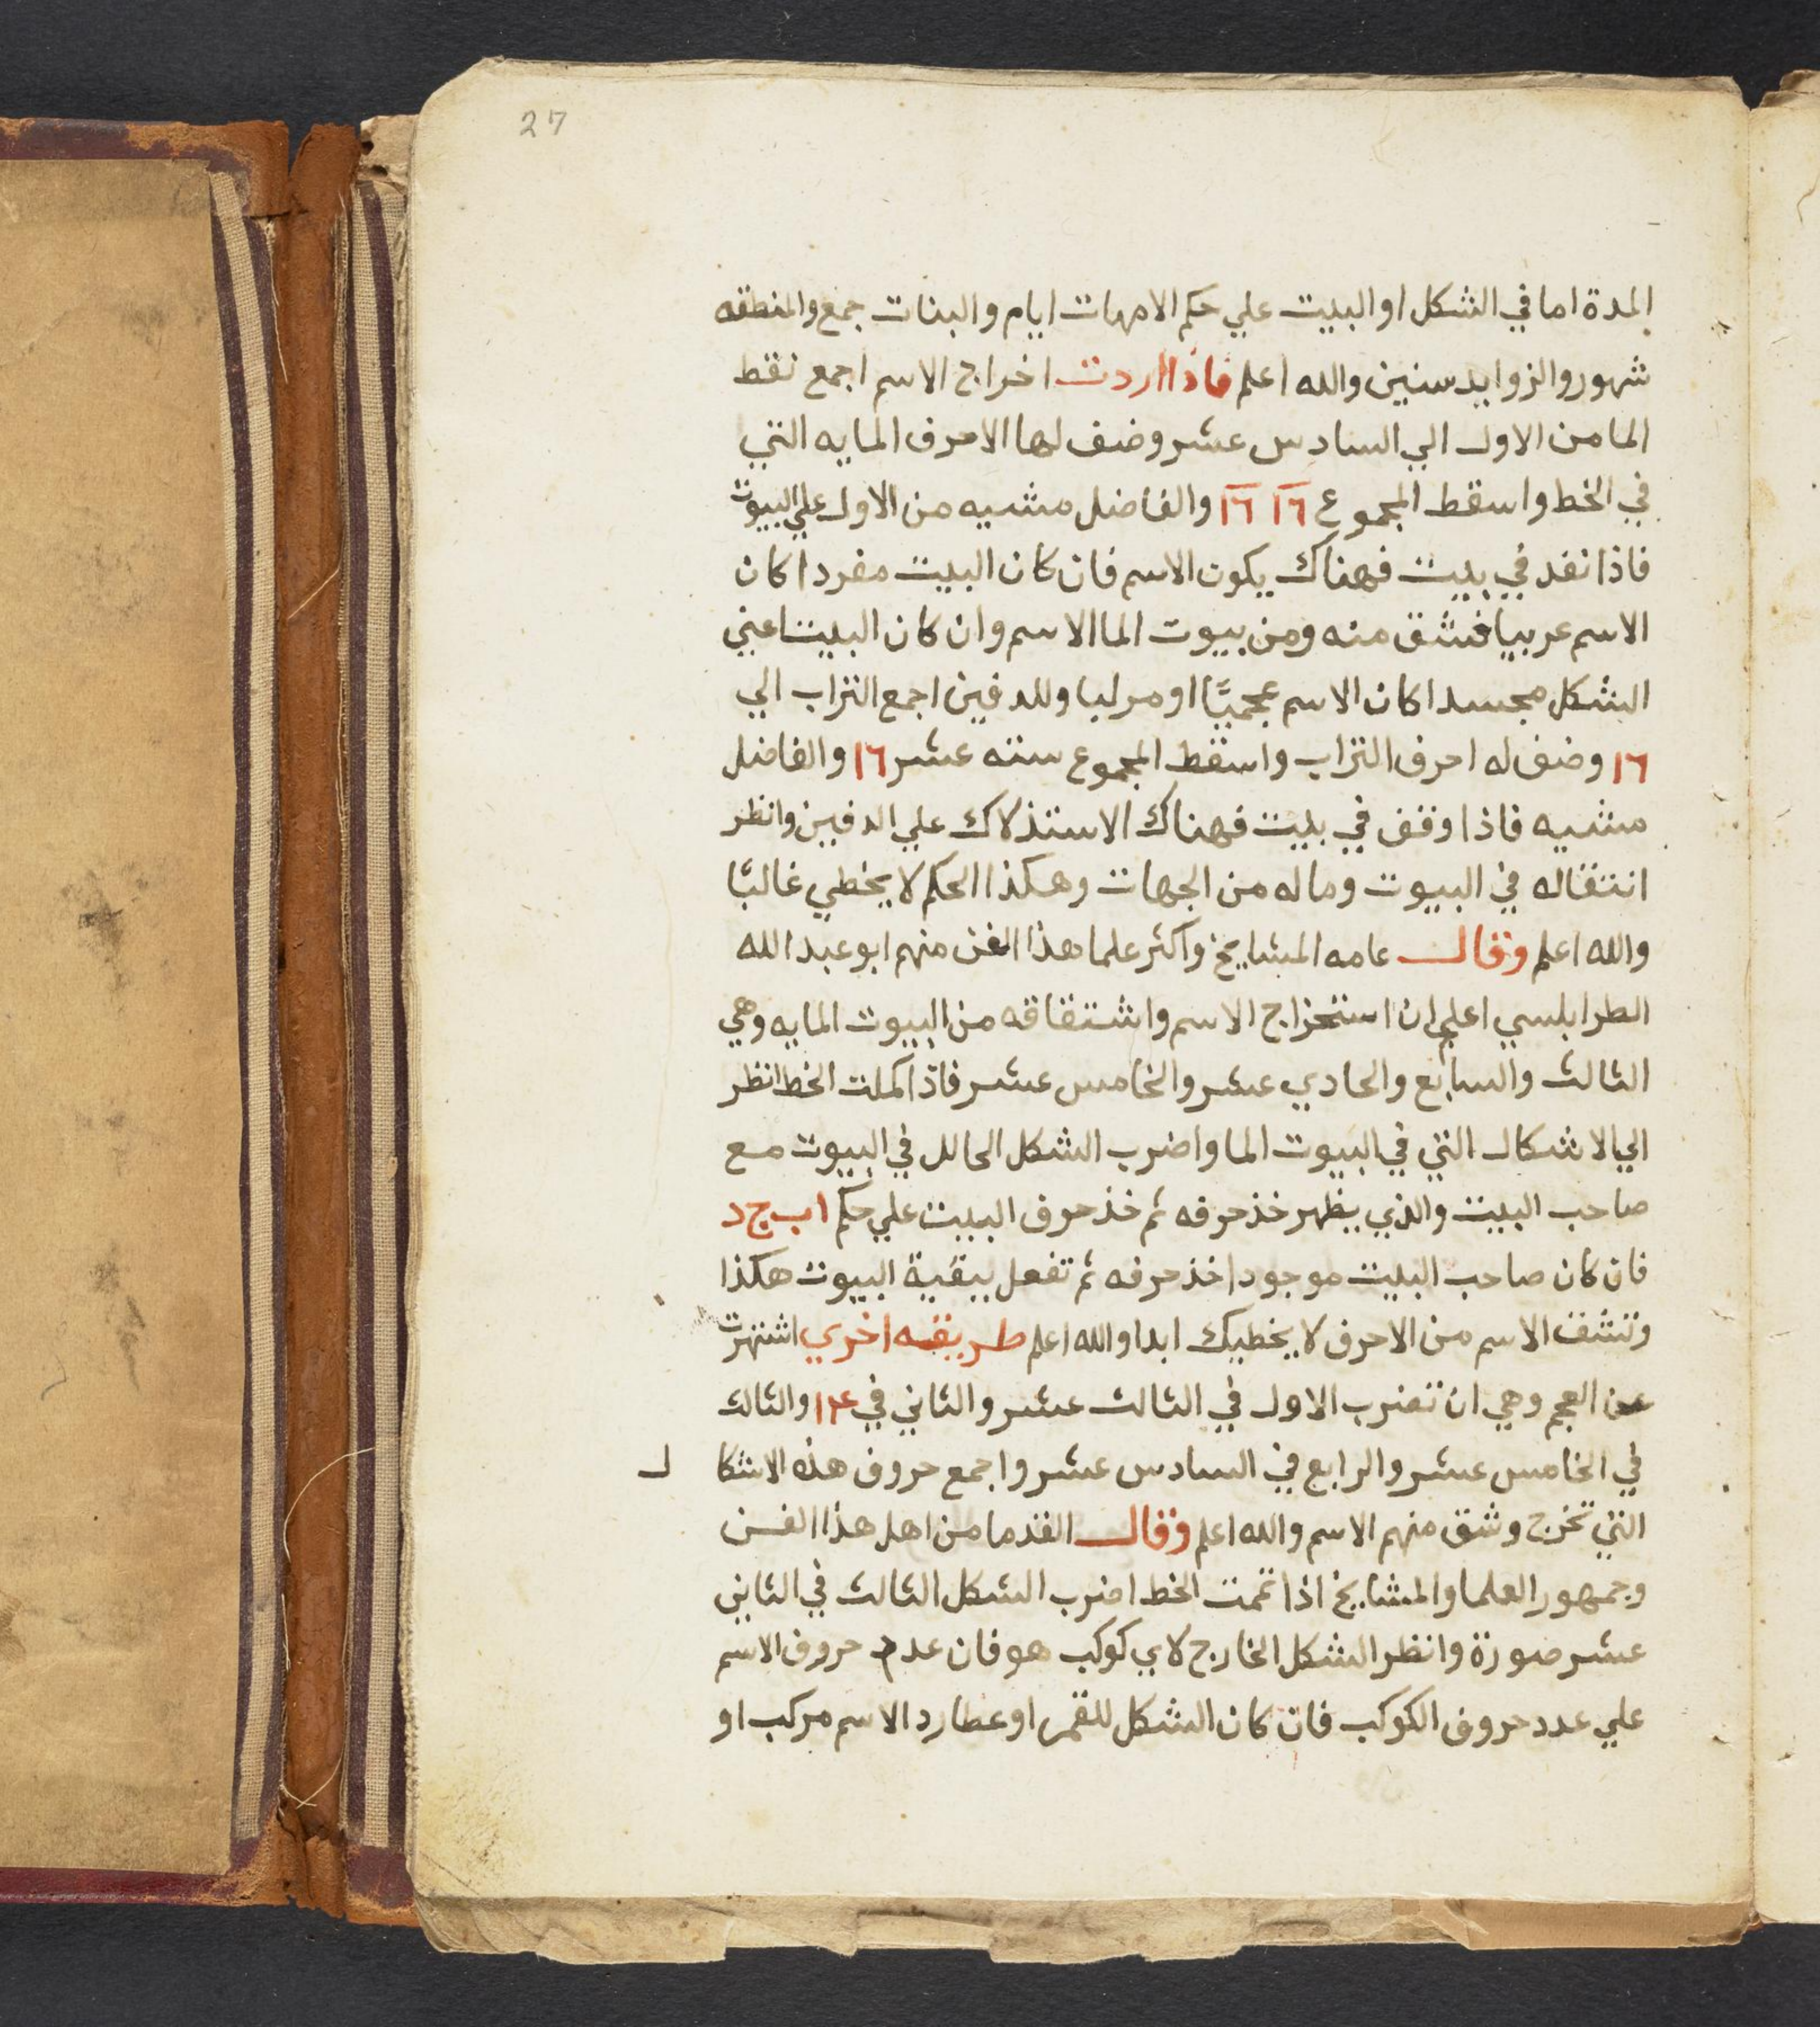 27
المدة اما في الشكل او البيت علي حكم الامهات ايام والبنات جمع والمنطقه
شهور والزوايد سنين والله اعلم فاذا اردت اخراج الاسم اجمع نقط
الما من الاول الي السادس عشر وضف لها الاحرف المايه التي
في الخط واسقط المجموع ١٦ ١٦ والفاضل مشيه من الاول علي البيوت
فاذا نفد في بيت فهناك يكون الاسم فان كان البيت مفردا كان
الاسم عربيا فشق منه ومن بيوت الما الاسم وان كان البيت اعني
الشكل مجسدا كان الاسم عجميًا او مركبا وللدفين اجمع التراب الي
١٦ وضف له احرف التراب واسقط المجموع سته عشر ١٦ والفاضل
مشيه فاذا وقف في بيت فهناك الاستذلاك علي الدفين وانظر
انتقاله في البيوت وماله من الجهات وهكذا الحكم لا يخطي غالبًا
والله اعلم وقال عامه المشايخ واكثر علما هذا الفن منهم ابو عبد الله
الطرابلسي اعلم ان استخراج الاسم واشتقاقه من البيوت المايه وهي
الثالث والسابع والحادي عشر والخامس عشر فاذا كملت الخط انظر
الي الاشكال التي في البيوت الما واضرب الشكل الحالل في البيوت مع
صاحب البيت والذي يظهر خذ حرفه ثم خذ حرف البيت علي حكم ا ب ج د
فان كان صاحب البيت موجودا خذ حرفه ثم تفعل ببقية البيوت هكذا
وتشق الاسم من الاحرف لا يخطيك ابدا والله اعلم طريقه اخري اشتهرت
عن العجم وهي ان تضرب الاول في الثالث عشر والثاني في ١٤ والثالث
في الخامس عشر والرابع في السادس عشر واجمع حروف هذه الاشكا ل
التي تخرج وشق منهم الاسم والله اعلم وقال القدما من اهل هذا الفن
وجمهور العلما والمشايخ اذا تممت الخط اضرب الشكل الثالث في الثاني
عشر صورة وانظر الشكل الخارج لاي كوكب هو فان عدد حروف الاسم
علي عدد حروف الكوكب فان كان الشكل للقمر او عطارد الاسم مركب او